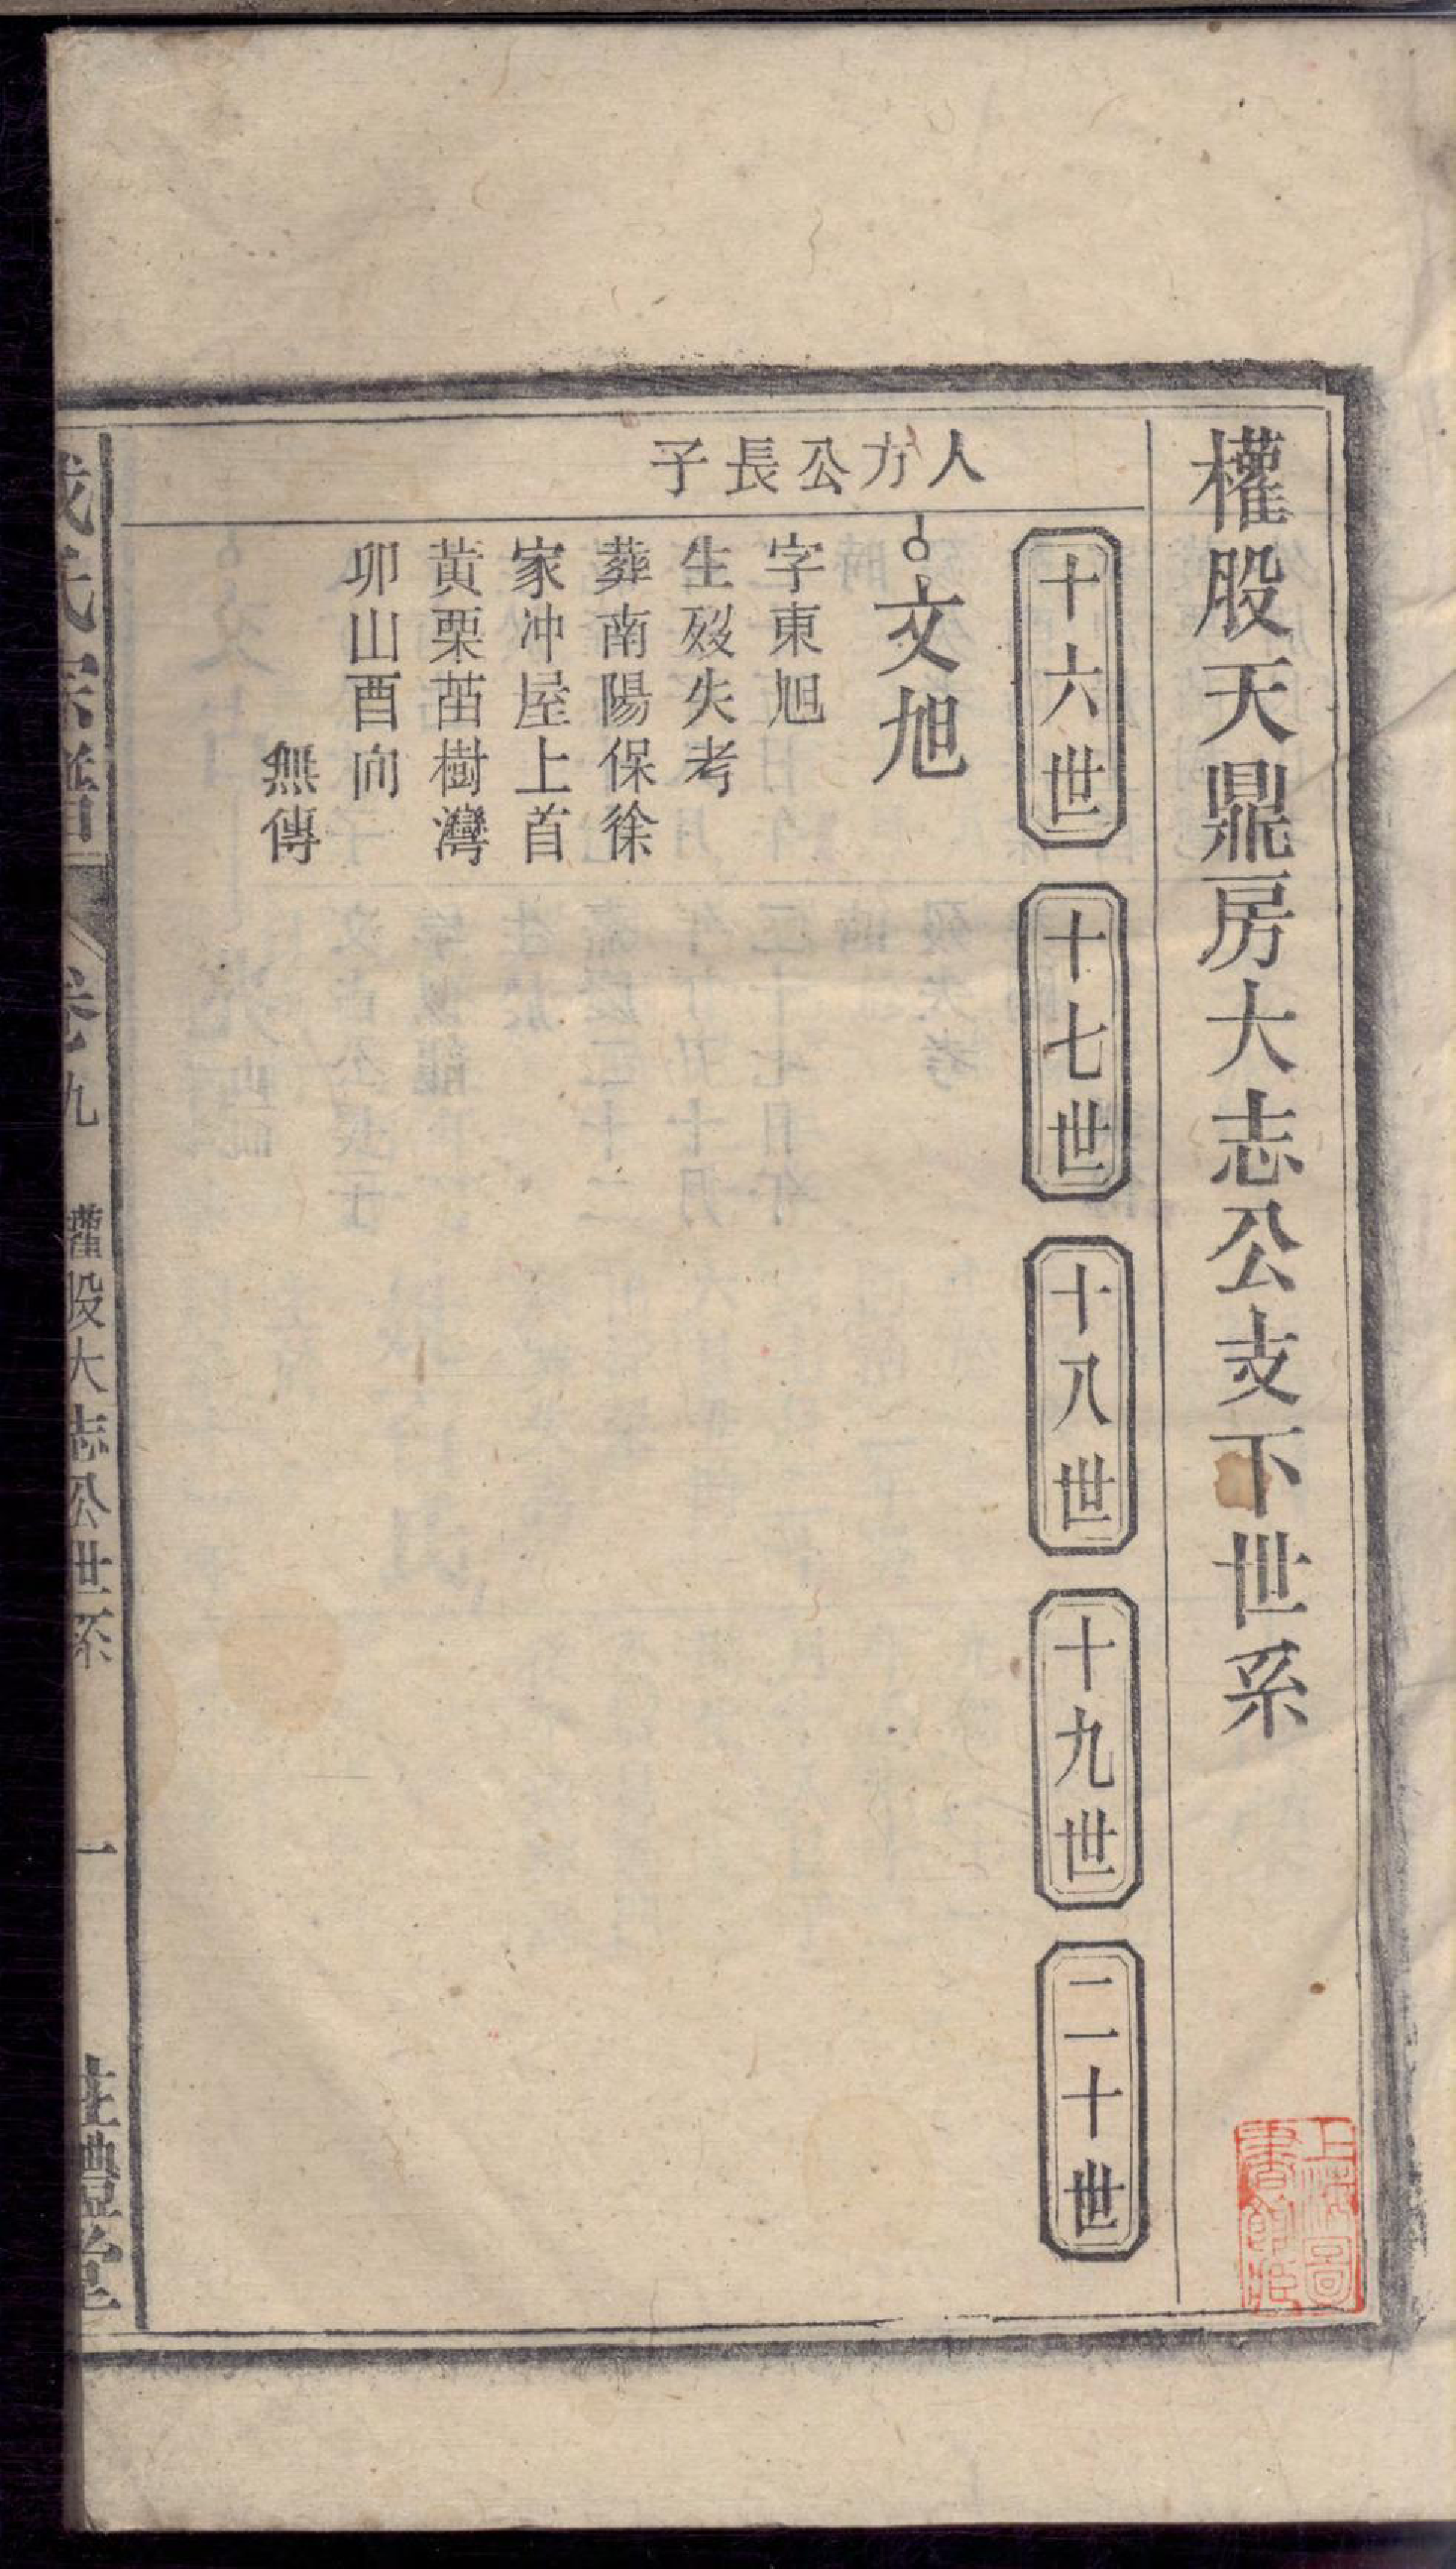 權股天鼎房大志公支下世系
十六世
十七世
十八世
十九世
二十世
人方公長子
文旭
字東旭
生歿失考
葬南陽保徐
家冲屋上首
黃栗茁樹灣
卯山酉向
無傳
氏宗譜
卷九
權股大志公世系
一
禮堂
上海圖
書館藏